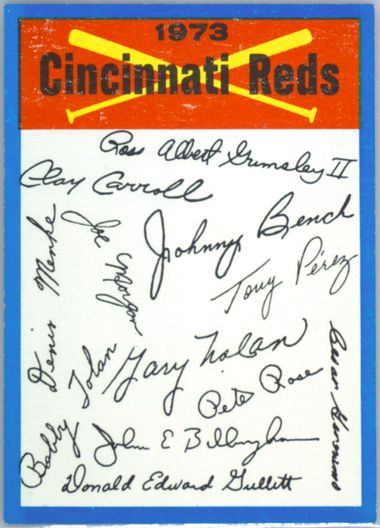 1973
Cincinnati Reds
Ross Albert Grimsley II
Clay Carroll
Johnny Bench
Joe Morgan
Denis Menke
Tony Pérez
Gary Nolan
Bobby Tolan
Pete Rose
Cesar Geronimo
John E Billingham
Donald Edward Gullett